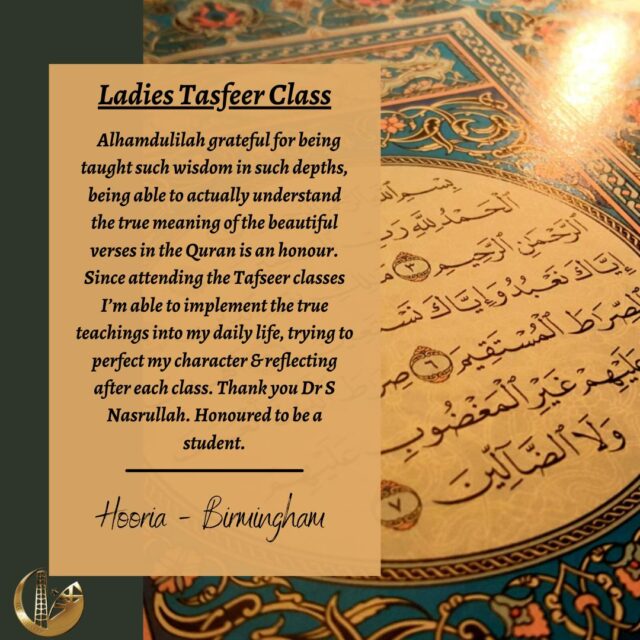 Ladies Tasfeer Class
Alhamdulilah grateful for being
taught such wisdom in such depths,
being able to actually understand
the true meaning of the beautiful
verses in the Quran is an honour.
Since attending the Tafseer classes
I'm able to implement the true
teachings into my daily life, trying to
perfect my character & reflecting
after each class. Thank you Dr S
Nasrullah. Honoured to be a
student.
Hooria - Birmingham
بِسْمِ
الْحَمْدُ لِلَّهِ رَبِّ
الرَّحْمَٰنِ الرَّحِيمِ ٣
إِيَّاكَ نَعْبُدُ وَإِيَّاكَ
الصِّرَاطَ الْمُسْتَقِيمَ ٦
عَلَيْهِمْ غَيْرِ الْمَغْضُوبِ عَلَيْهِمْ
وَلَا الضَّالِّينَ ٧